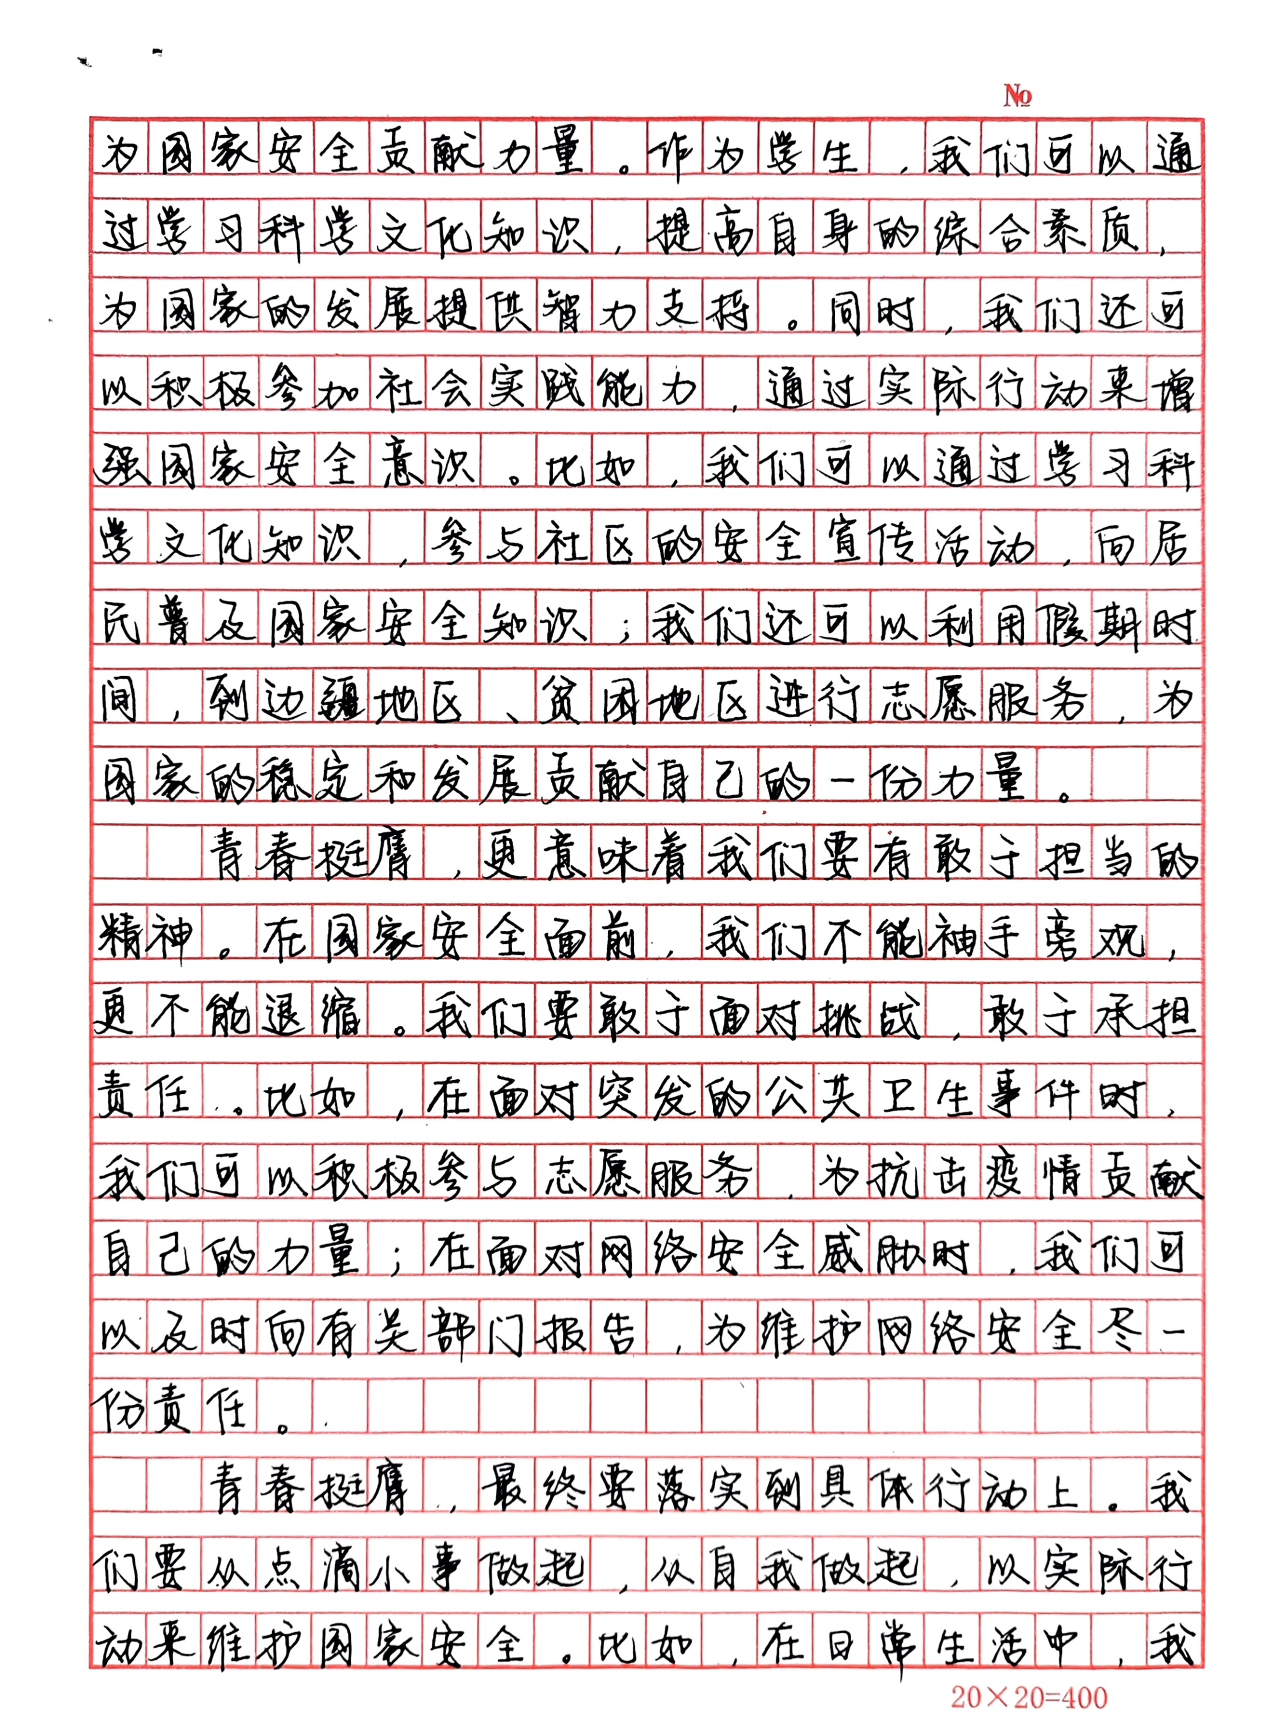 №
为国家安全贡献力量。作为学生，我们可以通
过学习科学文化知识，提高自身的综合素质，
为国家的发展提供智力支持。同时，我们还可
以积极参加社会实践能力，通过实际行动来增
强国家安全意识。比如，我们可以通过学习科
学文化知识，参与社区的安全宣传活动，向居
民普及国家安全知识；我们还可以利用假期时
间，到边疆地区、贫困地区进行志愿服务，为
国家的稳定和发展贡献自己的一份力量。
青春挺膺，更意味着我们要有敢于担当的
精神。在国家安全面前，我们不能袖手旁观，
更不能退缩。我们要敢于面对挑战，敢于承担
责任。比如，在面对突发的公共卫生事件时，
我们可以积极参与志愿服务，为抗击疫情贡献
自己的力量；在面对网络安全威胁时，我们可
以及时向有关部门报告，为维护网络安全尽一
份责任。
青春挺膺，最终要落实到具体行动上。我
们要从点滴小事做起，从自我做起，以实际行
动来维护国家安全。比如，在日常生活中，我
20×20=400